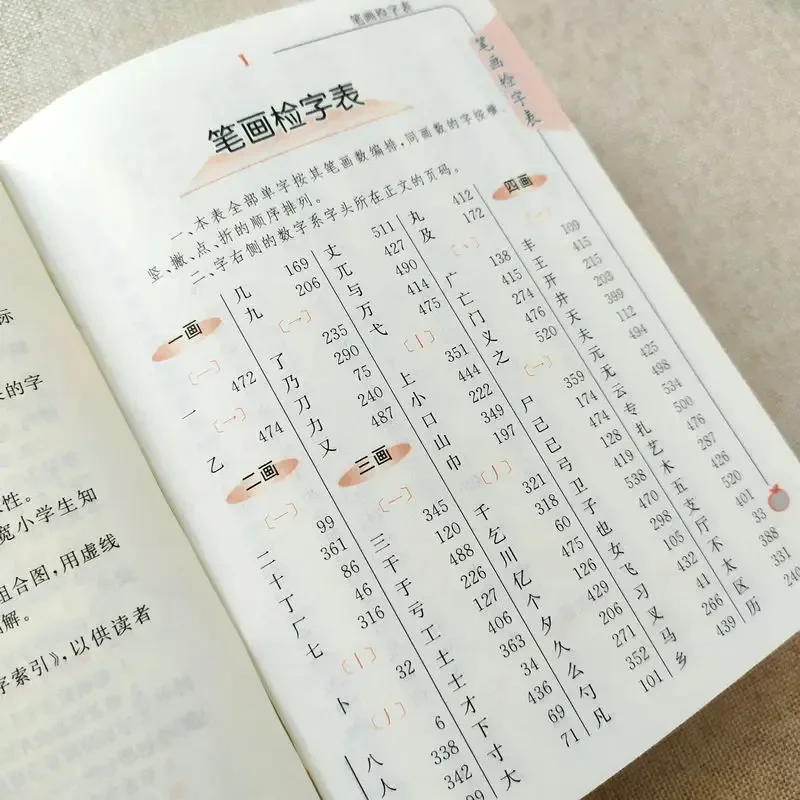 标
来的字
性。
宽小学生知
组合图,用虚线
图解。
字索引》,以供读者
笔画检字表
1
笔画检字表
笔画检字表
一、本表全部单字按其笔画数编排,同画数的字按横、
竖、撇、点、折的顺序排列。
二、字右侧的数字系字头所在正文的页码。
一画
〔一〕
一 472
〔一〕
乙 474
二画
〔一〕
二 99
十 361
丁 86
厂 46
七 316
〔丨〕
卜 32
〔丿〕
八 6
人 338
342
几 169
九 206
〔一〕
了 235
乃 290
刀 75
力 240
又 487
三画
〔一〕
三 345
干 120
于 488
亏 226
工 127
土 406
士 363
才 34
下 436
寸 69
大 71
丈 511
兀 427
与 490
万 414
弋 475
〔丨〕
上 351
小 444
口 222
山 349
巾 197
〔丿〕
千 321
乞 318
川 60
亿 475
个 126
夕 429
久 206
么 271
勺 352
凡 101
丸 412
及 172
〔丶〕
广 138
亡 415
门 274
义 476
之 520
〔一〕
尸 359
己 174
已 474
弓 128
卫 419
子 538
也 470
女 298
飞 105
习 432
叉 41
马 266
乡 439
四画
〔一〕
丰 109
王 415
开 215
井 203
天 399
夫 112
元 494
无 425
云 498
专 534
扎 500
艺 476
木 287
五 426
支 520
厅 401
不 33
太 388
区 331
历 240